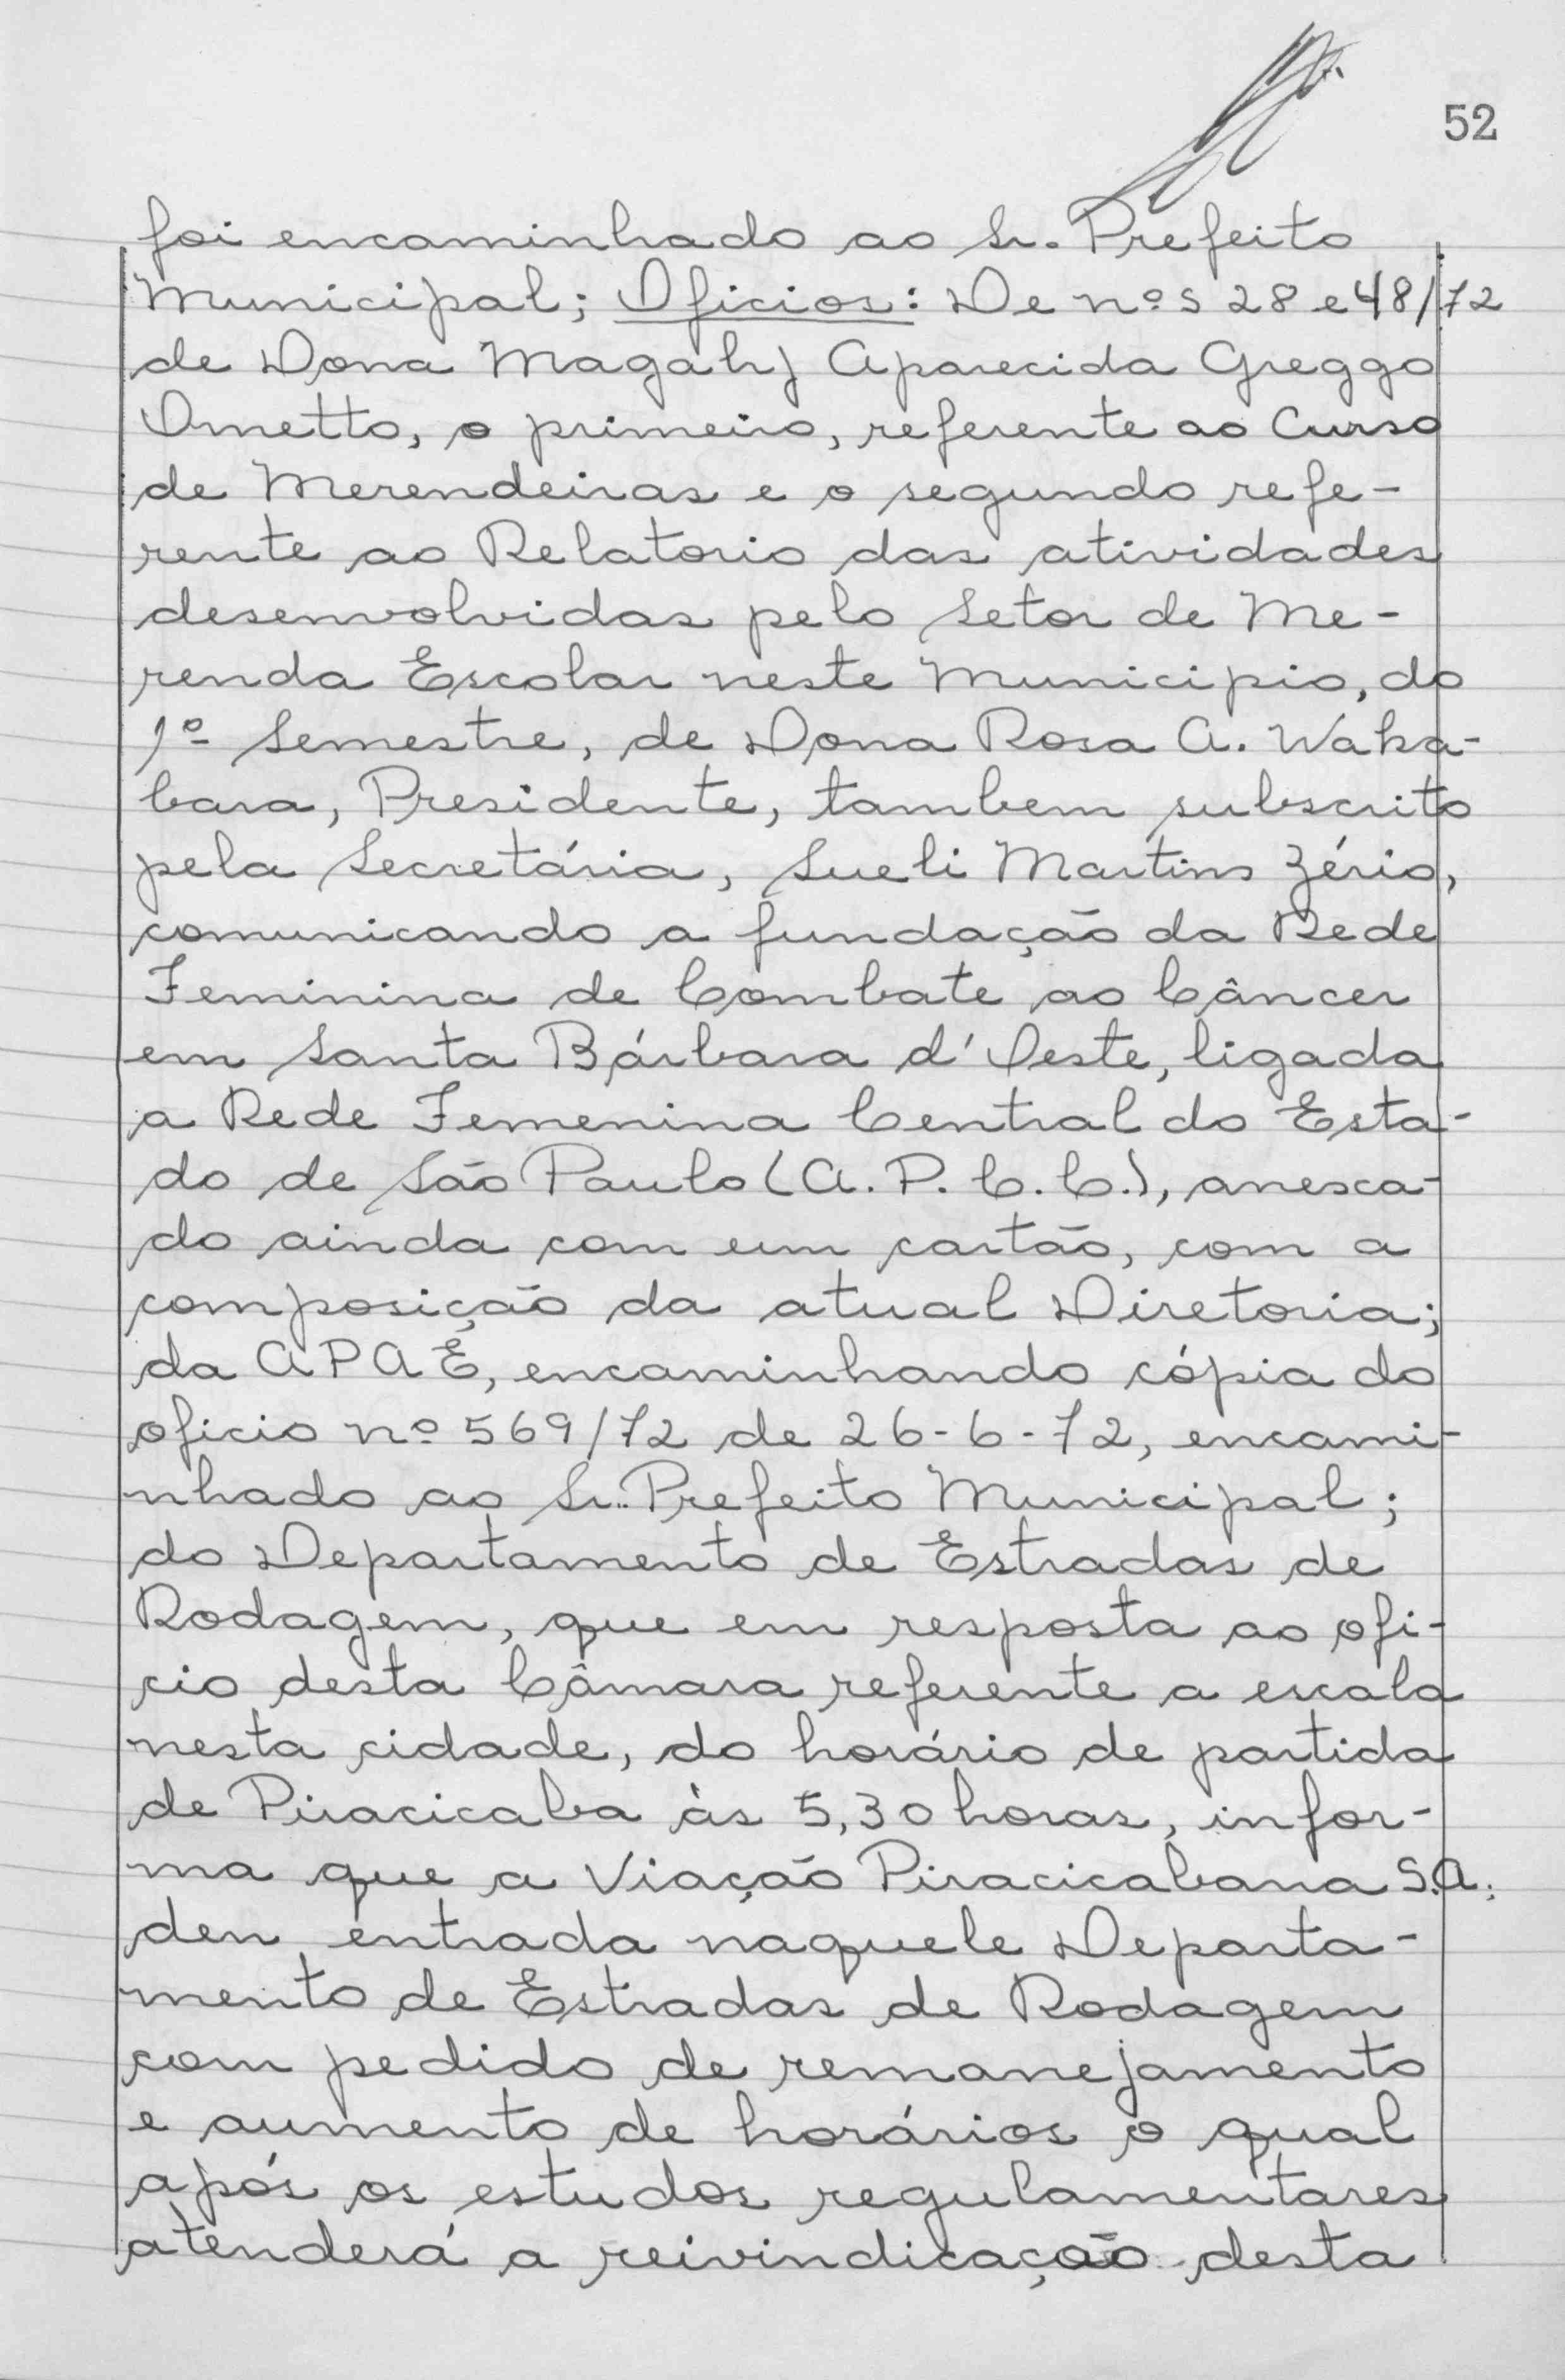 52
foi encaminhado ao Sr. Prefeito
Municipal; Oficios: De nº.s 28 e 48/72
de Dona Magaly Aparecida Greggo
Ometto, o primeiro, referente ao Curso
de Merendeiras e o segundo refe-
rente ao Relatorio das atividades
desenvolvidas pelo Setor de Me-
renda Escolar neste Municipio, do
1º Semestre, de Dona Rosa A. Waka-
bara, Presidente, tambem subscrito
pela Secretária, Sueli Martins Zério,
comunicando a fundação da Rede
Feminina de Combate ao Câncer
em Santa Bárbara d'Oeste, ligada
a Rede Femenina Central do Esta-
do de São Paulo (A. P. C. C.), anexca-
do ainda com um cartão, com a
composição da atual Diretoria;
da APAE, encaminhando cópia do
oficio nº 569/72 de 26-6-72, encami-
nhado ao Sr. Prefeito Municipal;
do Departamento de Estradas de
Rodagem, que em resposta ao ofi-
cio desta Câmara referente a escala
nesta cidade, do horário de partida
de Piracicaba às 5,30 horas, infor-
ma que a Viação Piracicabana S.A.
deu entrada naquele Departa-
mento de Estradas de Rodagem
com pedido de remanejamento
e aumento de horários o qual
após os estudos regulamentares
atenderá a reivindicação desta